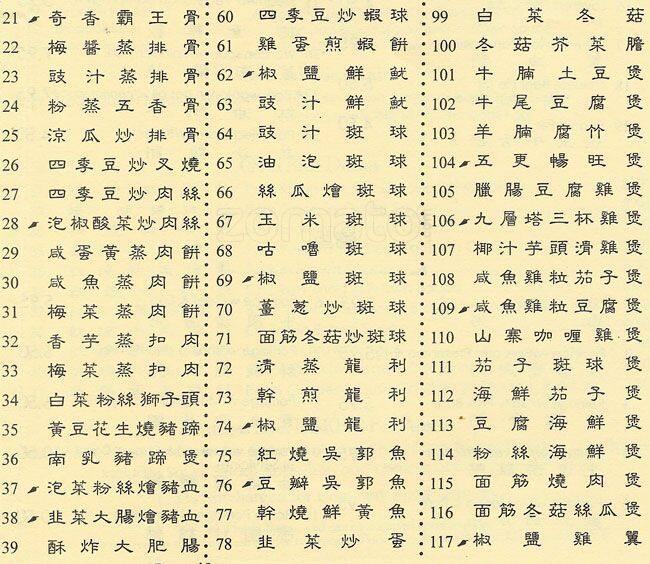 21 奇香霸王骨
22 梅醬蒸排骨
23 豉汁蒸排骨
24 粉蒸五香骨
25 涼瓜炒排骨
26 四季豆炒叉燒
27 四季豆炒肉絲
28 泡椒酸菜炒肉絲
29 咸蛋黃蒸肉餅
30 咸魚蒸肉餅
31 梅菜蒸肉餅
32 香芋蒸扣肉
33 梅菜蒸扣肉
34 白菜粉絲獅子頭
35 黃豆花生燒豬蹄
36 南乳豬蹄煲
37 泡菜粉絲燴豬血
38 韭菜大腸燴豬血
39 酥炸大肥腸
60 四季豆炒蝦球
61 雞蛋煎蝦餅
62 椒鹽鮮魷
63 豉汁鮮魷
64 豉汁斑球
65 油泡斑球
66 絲瓜燴斑球
67 玉米斑球
68 咕嚕斑球
69 椒鹽斑球
70 薑蔥炒斑球
71 面筋冬菇炒斑球
72 清蒸龍利
73 幹煎龍利
74 椒鹽龍利
75 紅燒吳郭魚
76 豆瓣吳郭魚
77 幹燒鮮黃魚
78 韭菜炒蛋
99 白菜冬菇
100 冬菇芥菜膽
101 牛腩土豆煲
102 牛尾豆腐煲
103 羊腩腐竹煲
104 五更暢旺煲
105 臘腸豆腐雞煲
106 九層塔三杯雞煲
107 椰汁芋頭滑雞煲
108 咸魚雞粒茄子煲
109 咸魚雞粒豆腐煲
110 山寨咖喱雞煲
111 茄子斑球煲
112 海鮮茄子煲
113 豆腐海鮮煲
114 粉絲海鮮煲
115 面筋燒肉煲
116 面筋冬菇絲瓜煲
117 椒鹽雞翼
zomato